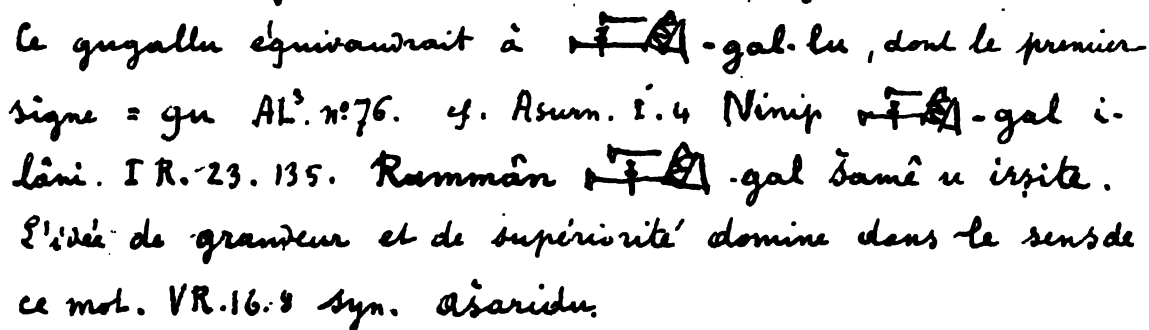 Ce gugallu équivaudrait à -gal-lu, dont le premier
signe = gu AL³. nº 76. cf. Asurn. I. 4 Ninip -gal i-
lâni. I R. 23. 135. Rammân -gal šamê u irṣite.
L'idée de grandeur et de supériorité domine dans le sens de
ce mot. VR. 16. 8 syn. ašaridu.